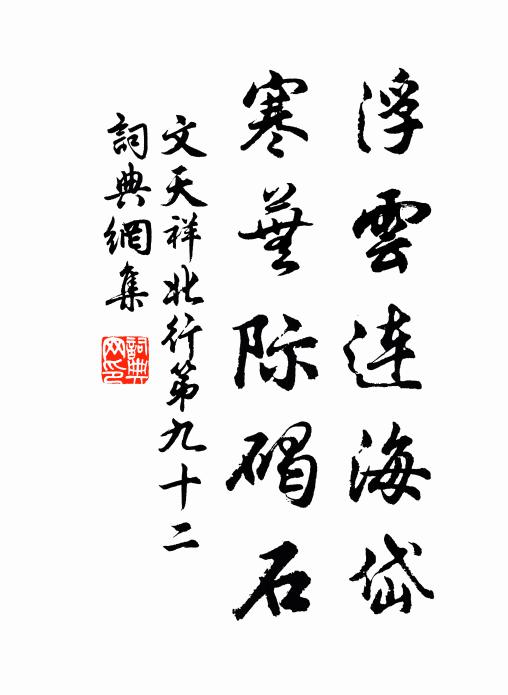 浮雲连海岱
寒蕪际碣石
文天祥北行第九十二
詞典網集
詞典网印